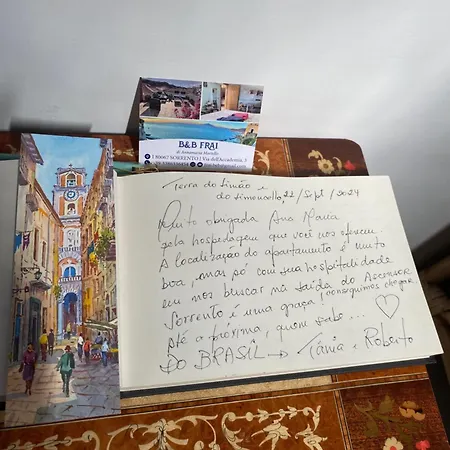 B&B FRAI
di Annamaria
I 80067 SORRENTO | Via dell'Accademia, 5
Terra do limão e
do limoncello, 22/Sept/2024
Muito obrigada Ana Maria
pela hospedagem que você nos oferem.
A localização do apartamento é muito
boa, mas só com sua hospitalidade
em nos buscar na saída do Ascensor
conseguimos chegar.
Sorrento é uma graça!
Até a próxima, quem sabe...
DO BRASIL → Tânia e Roberto